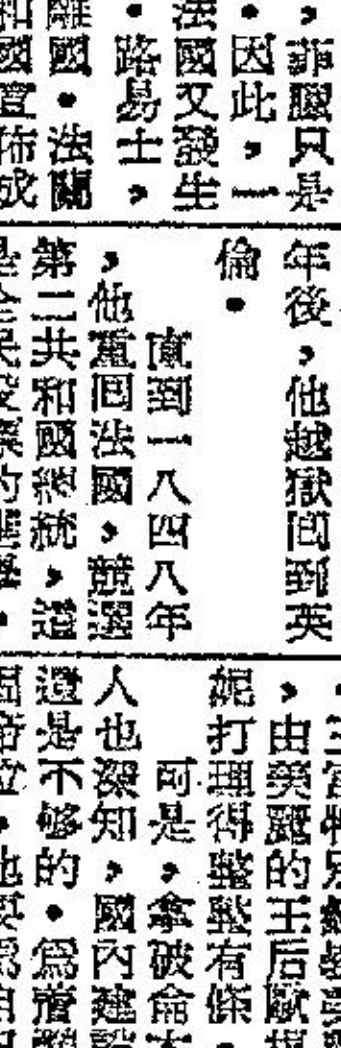 ，菲臘只是
．因此，一
法國又發生
．路易士，
離國．法
和國宣佈成
年後，他越獄回到英
倫．
直到一八四八年
，他重回法國，競選
第二共和國總統，這
是全民投票的選舉．
，由美麗的王后歐
妮打理得整整有條．
可是，拿破侖
人也深知，國內建
還是不够的．為